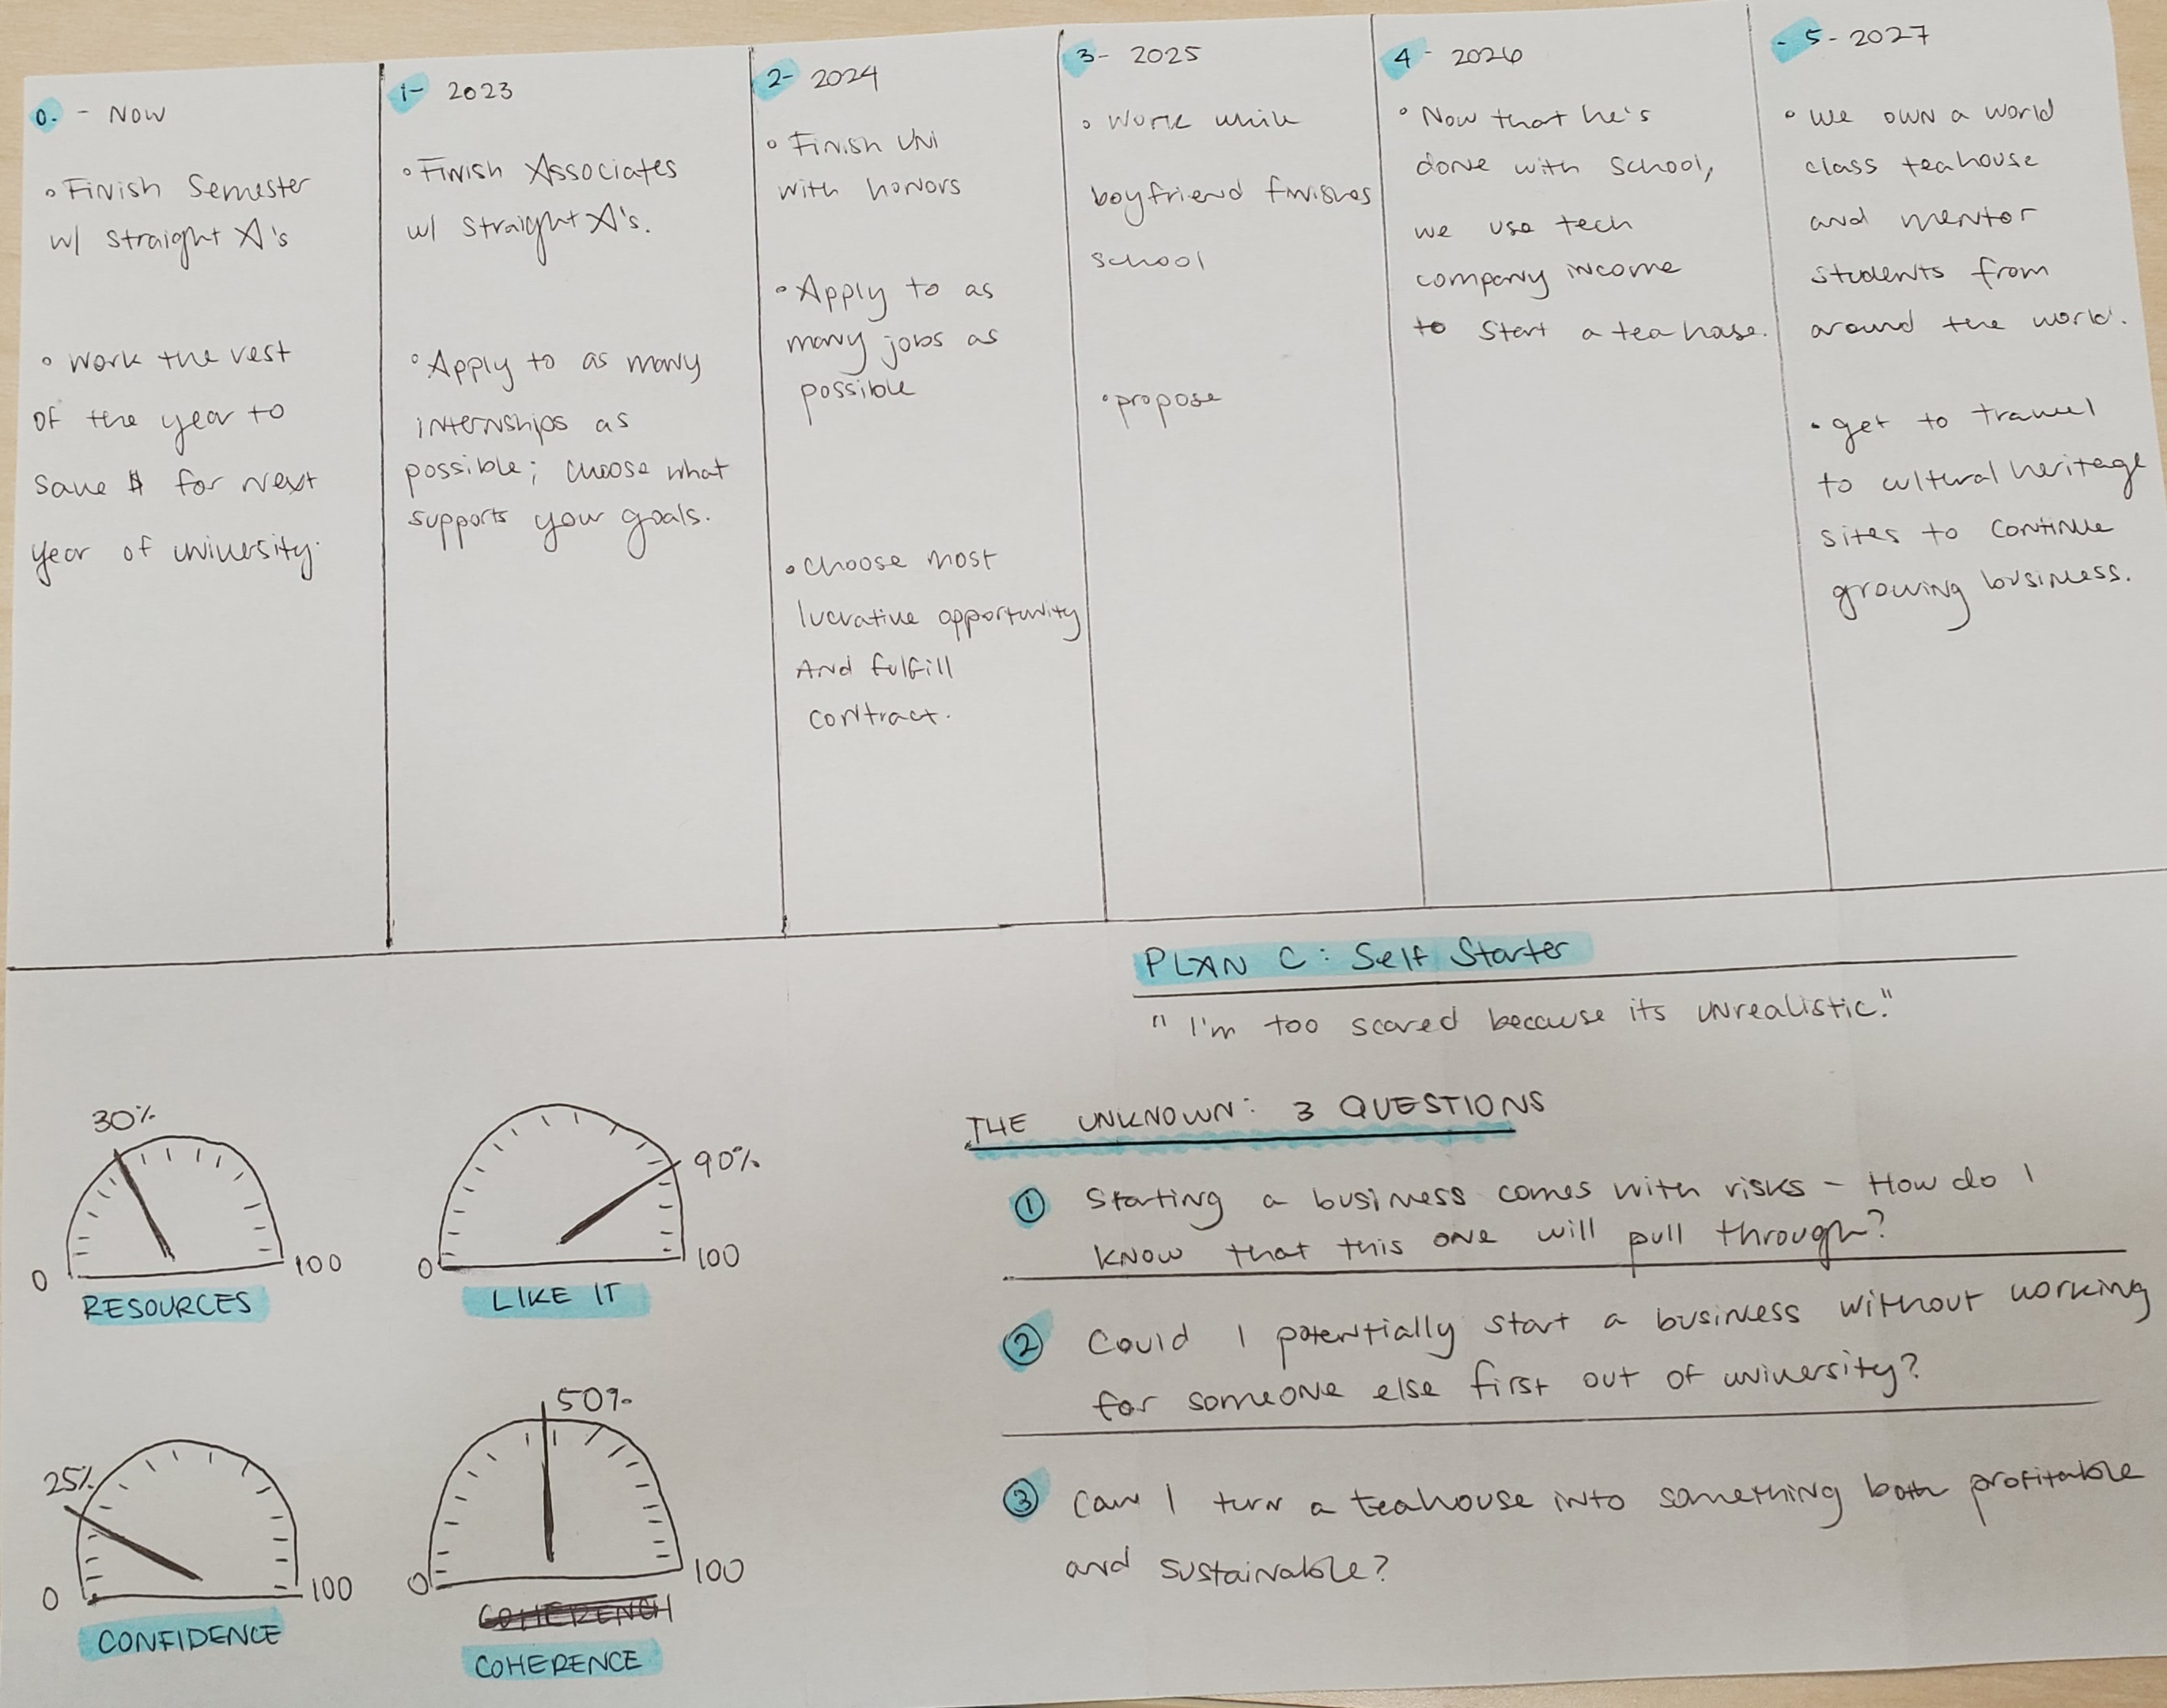 0. - NOW
◦ Finish Semester
w/ straight A's
◦ Work the rest
of the year to
save $ for next
year of university.
1- 2023
◦ Finish Associates
w/ straight A's.
◦ Apply to as many
internships as
possible; choose what
supports your goals.
2- 2024
◦ Finish Uni
with honors
◦ Apply to as
many jobs as
possible
◦ choose most
lucrative opportunity
And fulfill
contract.
3- 2025
◦ Work while
boyfriend finishes
school
◦ propose
4 - 2026
◦ Now that he's
done with school,
we use tech
company income
to start a teahase.
- 5 - 2027
◦ We own a world
class teahouse
and mentor
students from
around the world.
• get to travel
to cultural heritage
sites to continue
growing business.
PLAN C: Self Starter
"I'm too scared because its unrealistic."
30%
0
100
RESOURCES
90%
0
100
LIKE IT
25%
0
100
CONFIDENCE
50%
0
100
COHERENCE
THE UNKNOWN: 3 QUESTIONS
① Starting a business comes with risks - How do I
know that this one will pull through?
② Could I potentially start a business without working
for someone else first out of university?
③ Can I turn a teahouse into something both profitable
and sustainable?